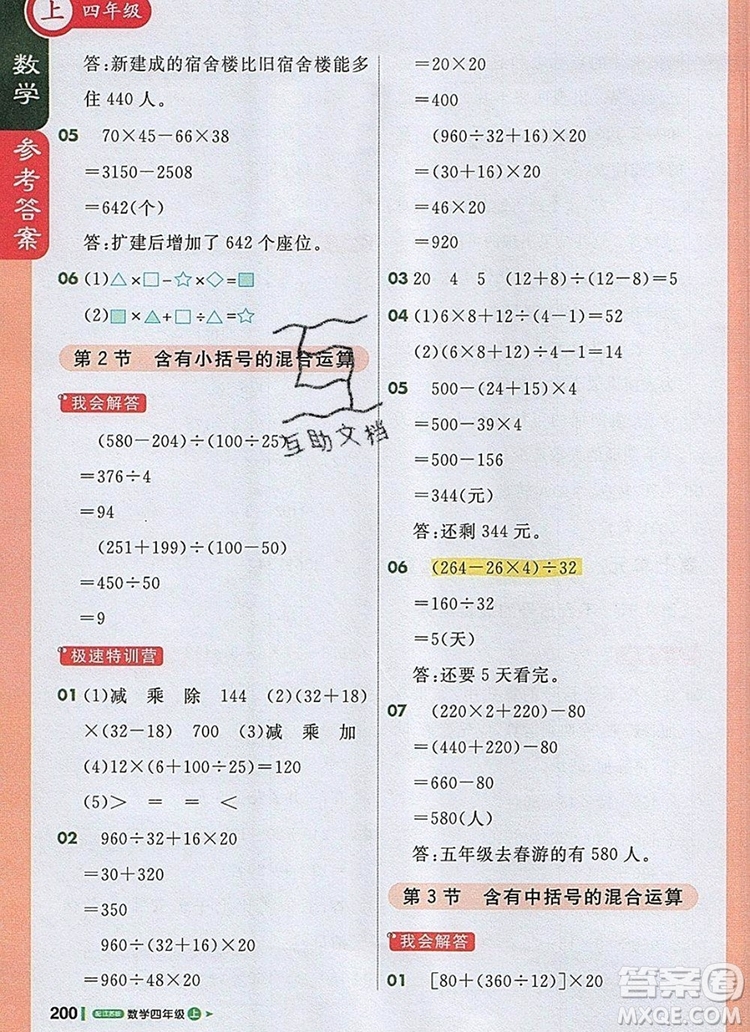 上 四年级
数学
参考答案
答:新建成的宿舍楼比旧宿舍楼能多
住 440 人。
05 70×45-66×38
=3150-2508
=642(个)
答:扩建后增加了 642 个座位。
06 (1)△×□-☆×◇=■
(2)■×▲+□÷△=☆
第 2 节 含有小括号的混合运算
我会解答
(580-204)÷(100÷25)
=376÷4
=94
(251+199)÷(100÷2)
=450÷50
=9
极速特训营
01 (1)减 乘 除 144 (2)(32+18)
×(32-18) 700 (3)减 乘 加
(4)12×(6+100÷25)=120
(5)> = = <
02 960÷32+16×20
=30+320
=350
960÷(32+16)×20
=960÷48×20
=20×20
=400
(960÷32+16)×20
=(30+16)×20
=46×20
=920
03 20 4 5 (12+8)÷(12-8)=5
04 (1)6×8+12÷(4-1)=52
(2)(6×8+12)÷4-1=14
05 500-(24+15)×4
=500-39×4
=500-156
=344(元)
答:还剩 344 元。
06 (264-26×4)÷32
=160÷32
=5(天)
答:还要 5 天看完。
07 (220×2+220)-80
=(440+220)-80
=660-80
=580(人)
答:五年级去春游的有 580 人。
第 3 节 含有中括号的混合运算
我会解答
01 [80+(360÷12)]×20
互助文档
200 配江苏版 数学四年级 上
答案圈
MXQE.COM